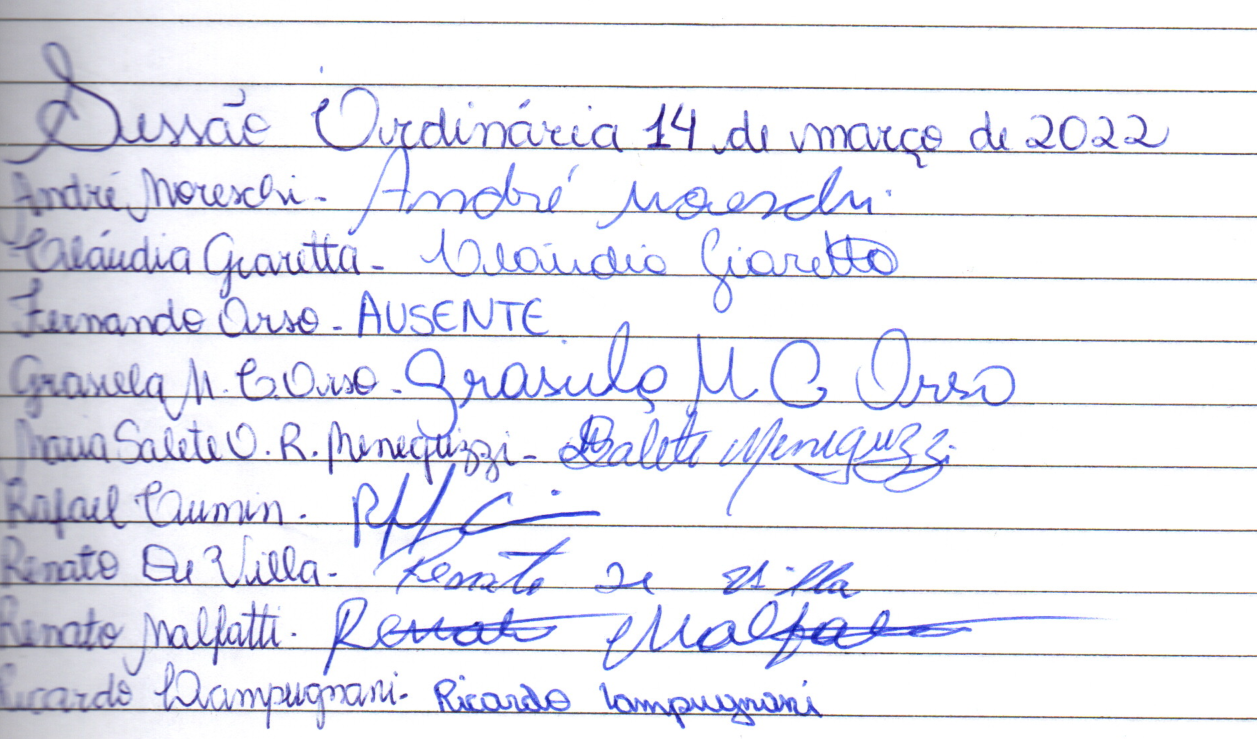 Sessão Ordinária 14 de março de 2022
André Moreschi - André Moreschi
Cláudia Giaretta - Cláudia Giaretta
Fernando Orso - AUSENTE
Grasiela M. C. Orso - Grasiela M C Orso
Maria Salete O. R. Meneguzzi - Salete Meneguzzi
Rafael
Renato De Villa - Renato De Villa
Renato Malfatti - Renato Malfatti
Ricardo Lampugnani - Ricardo Lampugnani